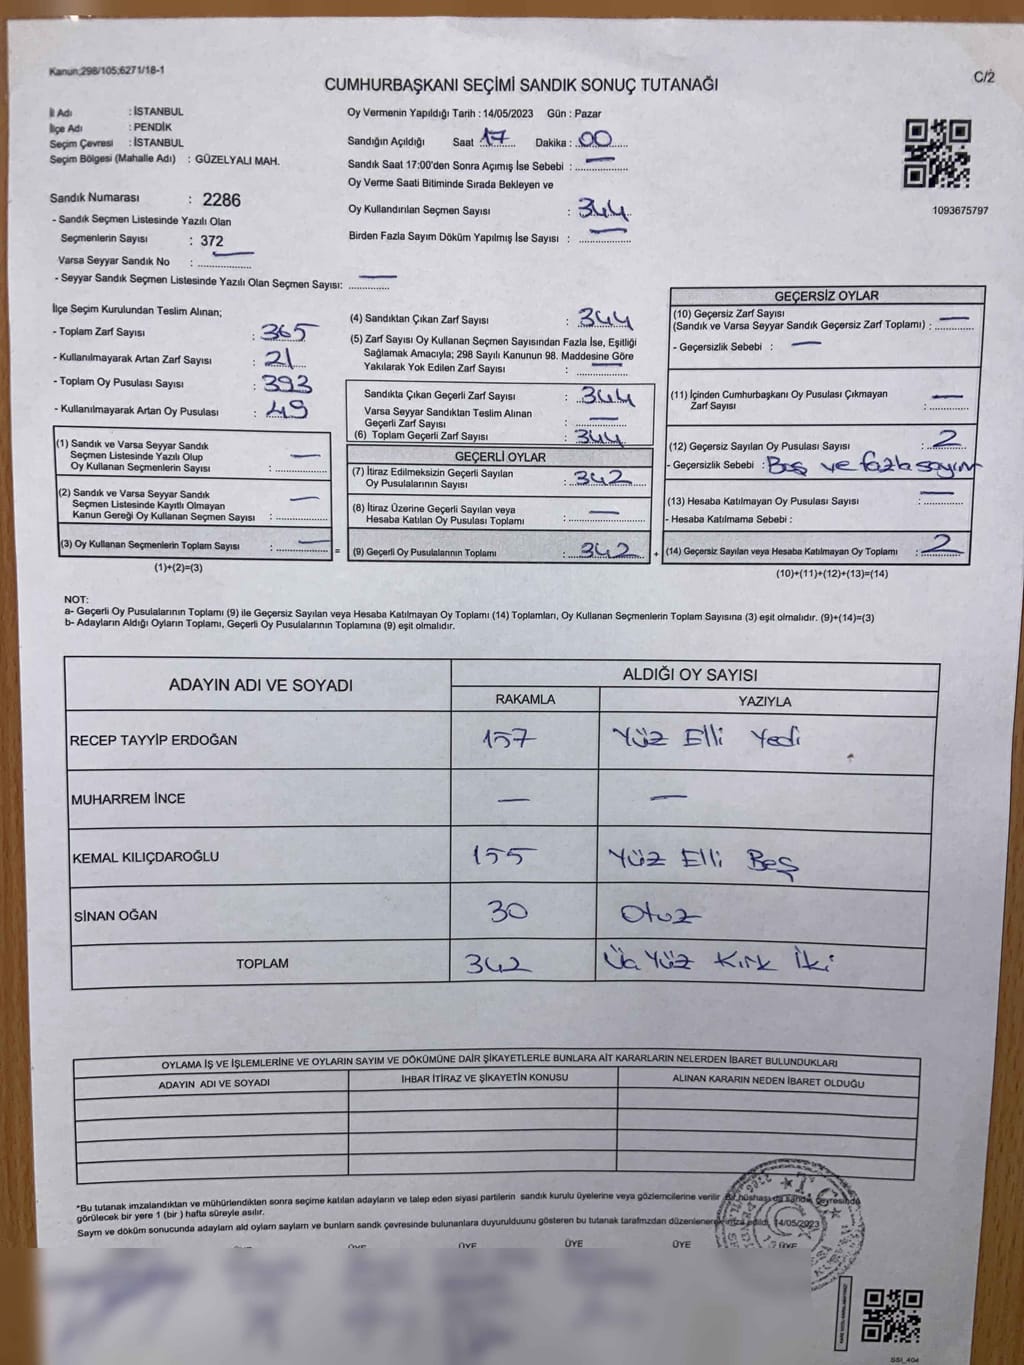 Kanun;298/105;6271/18-1
C/2
CUMHURBAŞKANI SEÇİMİ SANDIK SONUÇ TUTANAĞI
İl Adı : İSTANBUL
İlçe Adı : PENDİK
Seçim Çevresi : İSTANBUL
Seçim Bölgesi (Mahalle Adı) : GÜZELYALI MAH.
Sandık Numarası : 2286
- Sandık Seçmen Listesinde Yazılı Olan
Seçmenlerin Sayısı : 372
Varsa Seyyar Sandık No : —
- Seyyar Sandık Seçmen Listesinde Yazılı Olan Seçmen Sayısı: —
Oy Vermenin Yapıldığı Tarih : 14/05/2023 Gün : Pazar
Sandığın Açıldığı Saat 17 Dakika : 00
Sandık Saat 17:00'den Sonra Açımış İse Sebebi : —
Oy Verme Saati Bitiminde Sırada Bekleyen ve
Oy Kullandırılan Seçmen Sayısı : 344
Birden Fazla Sayım Döküm Yapılmış İse Sayısı : —
1093675797
İlçe Seçim Kurulundan Teslim Alınan;
- Toplam Zarf Sayısı : 365
- Kullanılmayarak Artan Zarf Sayısı : 21
- Toplam Oy Pusulası Sayısı : 393
- Kullanılmayarak Artan Oy Pusulası : 49
(1) Sandık ve Varsa Seyyar Sandık
Seçmen Listesinde Yazılı Olup
Oy Kullanan Seçmenlerin Sayısı : —
(2) Sandık ve Varsa Seyyar Sandık
Seçmen Listesinde Kayıtlı Olmayan
Kanun Gereği Oy Kullanan Seçmen Sayısı : —
(3) Oy Kullanan Seçmenlerin Toplam Sayısı : — =
(1)+(2)=(3)
(4) Sandıktan Çıkan Zarf Sayısı : 344
(5) Zarf Sayısı Oy Kullanan Seçmen Sayısından Fazla İse, Eşitliği
Sağlamak Amacıyla; 298 Sayılı Kanunun 98. Maddesine Göre
Yakılarak Yok Edilen Zarf Sayısı : —
Sandıkta Çıkan Geçerli Zarf Sayısı : 344
Varsa Seyyar Sandıktan Teslim Alınan
Geçerli Zarf Sayısı : —
(6) Toplam Geçerli Zarf Sayısı : 344
GEÇERLİ OYLAR
(7) İtiraz Edilmeksizin Geçerli Sayılan
Oy Pusulalarının Sayısı : 342
(8) İtiraz Üzerine Geçerli Sayılan veya
Hesaba Katılan Oy Pusulası Toplamı : —
(9) Geçerli Oy Pusulalarının Toplamı : 342 +
GEÇERSİZ OYLAR
(10) Geçersiz Zarf Sayısı
(Sandık ve Varsa Seyyar Sandık Geçersiz Zarf Toplamı) : —
- Geçersizlik Sebebi : —
(11) İçinden Cumhurbaşkanı Oy Pusulası Çıkmayan
Zarf Sayısı : —
(12) Geçersiz Sayılan Oy Pusulası Sayısı : 2
- Geçersizlik Sebebi : Boş ve fazla sayım
(13) Hesaba Katılmayan Oy Pusulası Sayısı : —
- Hesaba Katılmama Sebebi :
(14) Geçersiz Sayılan veya Hesaba Katılmayan Oy Toplamı : 2
(10)+(11)+(12)+(13)=(14)
NOT:
a- Geçerli Oy Pusulalarının Toplamı (9) ile Geçersiz Sayılan veya Hesaba Katılmayan Oy Toplamı (14) Toplamları, Oy Kullanan Seçmenlerin Toplam Sayısına (3) eşit olmalıdır. (9)+(14)=(3)
b- Adayların Aldığı Oyların Toplamı, Geçerli Oy Pusulalarının Toplamına (9) eşit olmalıdır.
ADAYIN ADI VE SOYADI ALDIĞI OY SAYISI
RAKAMLA YAZIYLA
RECEP TAYYİP ERDOĞAN 157 Yüz Elli Yedi
MUHARREM İNCE — —
KEMAL KILIÇDAROĞLU 155 Yüz Elli Beş
SİNAN OĞAN 30 Otuz
TOPLAM 342 Üç Yüz Kırk İki
OYLAMA İŞ VE İŞLEMLERİNE VE OYLARIN SAYIM VE DÖKÜMÜNE DAİR ŞİKAYETLERLE BUNLARA AİT KARARLARIN NELERDEN İBARET BULUNDUKLARI
ADAYIN ADI VE SOYADI İHBAR İTİRAZ VE ŞİKAYETİN KONUSU ALINAN KARARIN NEDEN İBARET OLDUĞU
*Bu tutanak imzalandıktan ve mühürlendikten sonra seçime katılan adayların ve talep eden siyasi partilerin sandık kurulu üyelerine veya gözlemcilerine verilir Bir nüshası da sandık çevresinde
görülecek bir yere 1 (bir ) hafta süreyle asılır.
Sayım ve döküm sonucunda adayların ald oyların saylarn ve bunların sandık çevresinde bulunanlara duyurulduunu gösteren bu tutanak tarafmzdan düzenlenerek imza edildi. 14/05/2023
ÜYE ÜYE ÜYE ÜYE ÜYE ÜYE
T.C.
SSI_404